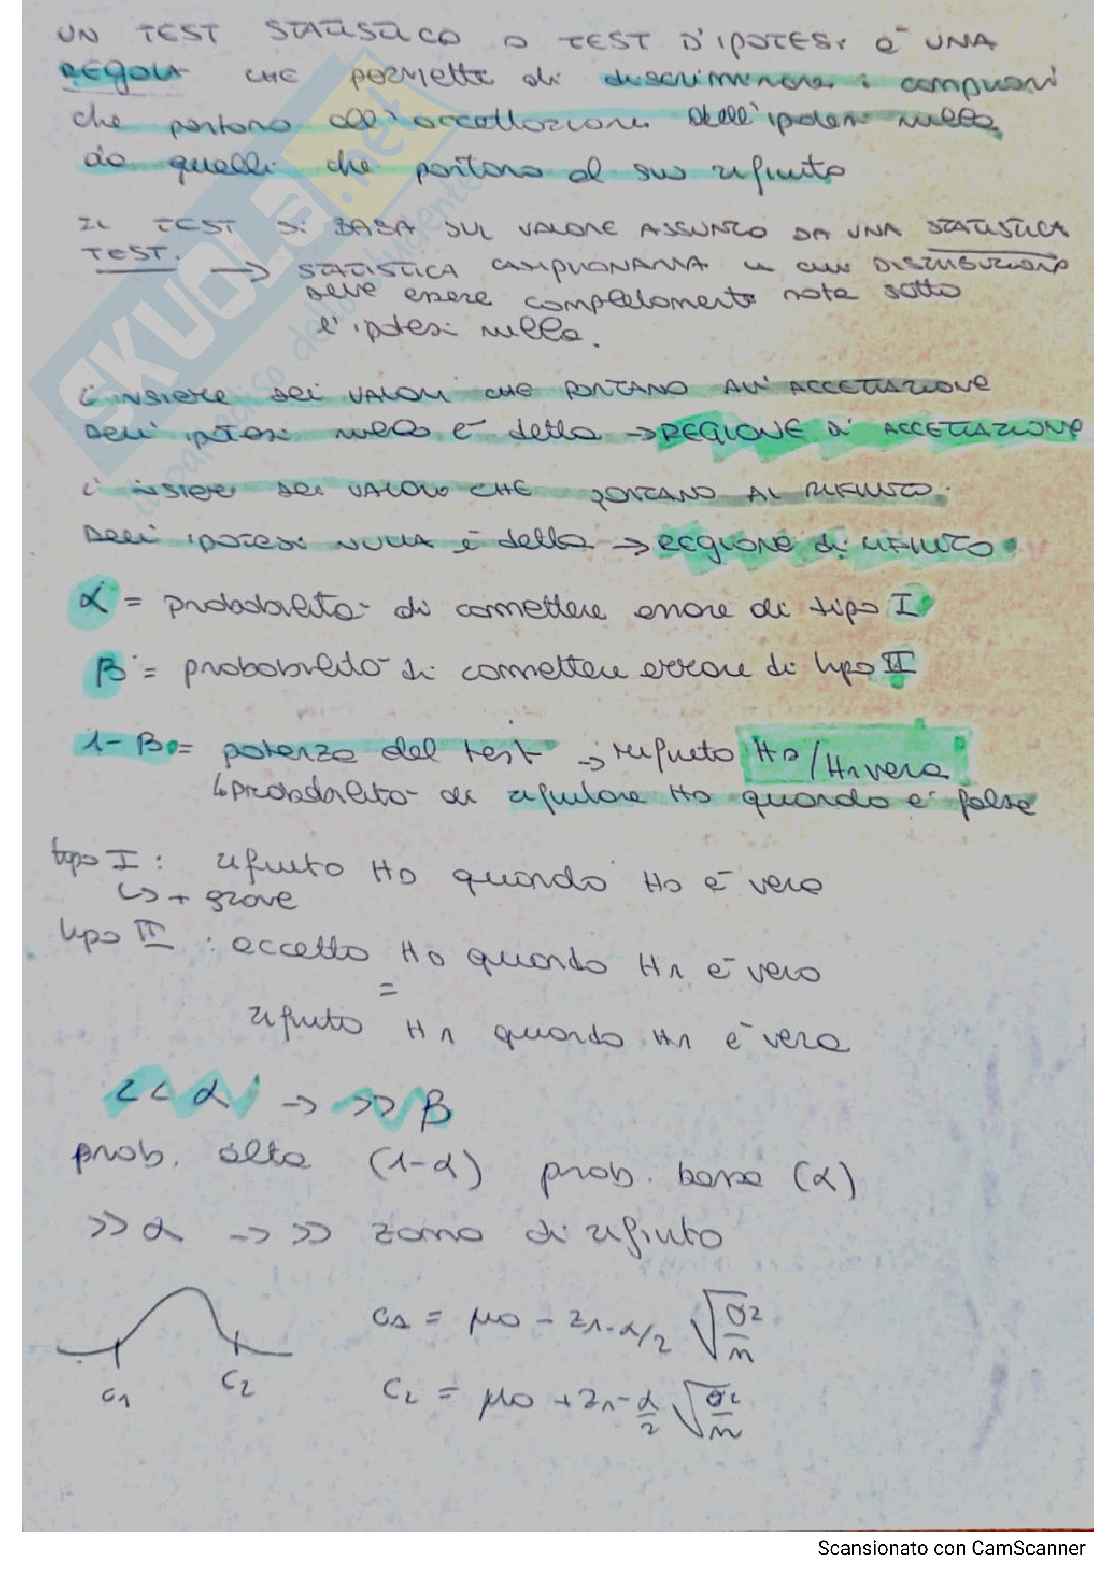 UN TEST STATISTICO O TEST D'IPOTESI è UNA
REGOLA CHE permette di discriminare i campioni
che portano all'accettazione dell'ipotesi nulla
da quelli che portano al suo rifiuto
IL TEST SI BASA SUL VALORE ASSUNTO DA UNA STATISTICA
TEST. → STATISTICA CAMPIONARIA la cui DISTRIBUZIONE
deve essere completamente nota sotto
l'ipotesi nulla.
L'INSIEME DEI VALORI CHE PORTANO ALL'ACCETTAZIONE
DELL'ipotesi nulla è detta → REGIONE DI ACCETTAZIONE
L'INSIEME DEI VALORI CHE PORTANO AL RIFIUTO
DELL'IPOTESI NULLA è detta → REGIONE di RIFIUTO
α = probabilità di commettere errore di tipo I
β = probabilità di commettere errore di tipo II
1-β = potenza del test → rifiuto H0/H1 vera
↳ probabilità di rifiutare H0 quando è falsa
tipo I : rifiuto H0 quando H0 è vera
↳ + grave
tipo II : accetto H0 quando H1 è vera
=
rifiuto H1 quando H1 è vera
<< α → >> β
prob. alta (1-α) prob. bassa (α)
>> α → >> zona di rifiuto
c1 = μ0 - z1-α/2 √σ2/n
c1 c2
c2 = μ0 + z1-α/2 √σ2/n
SKUOLA.net
Scansionato con CamScanner